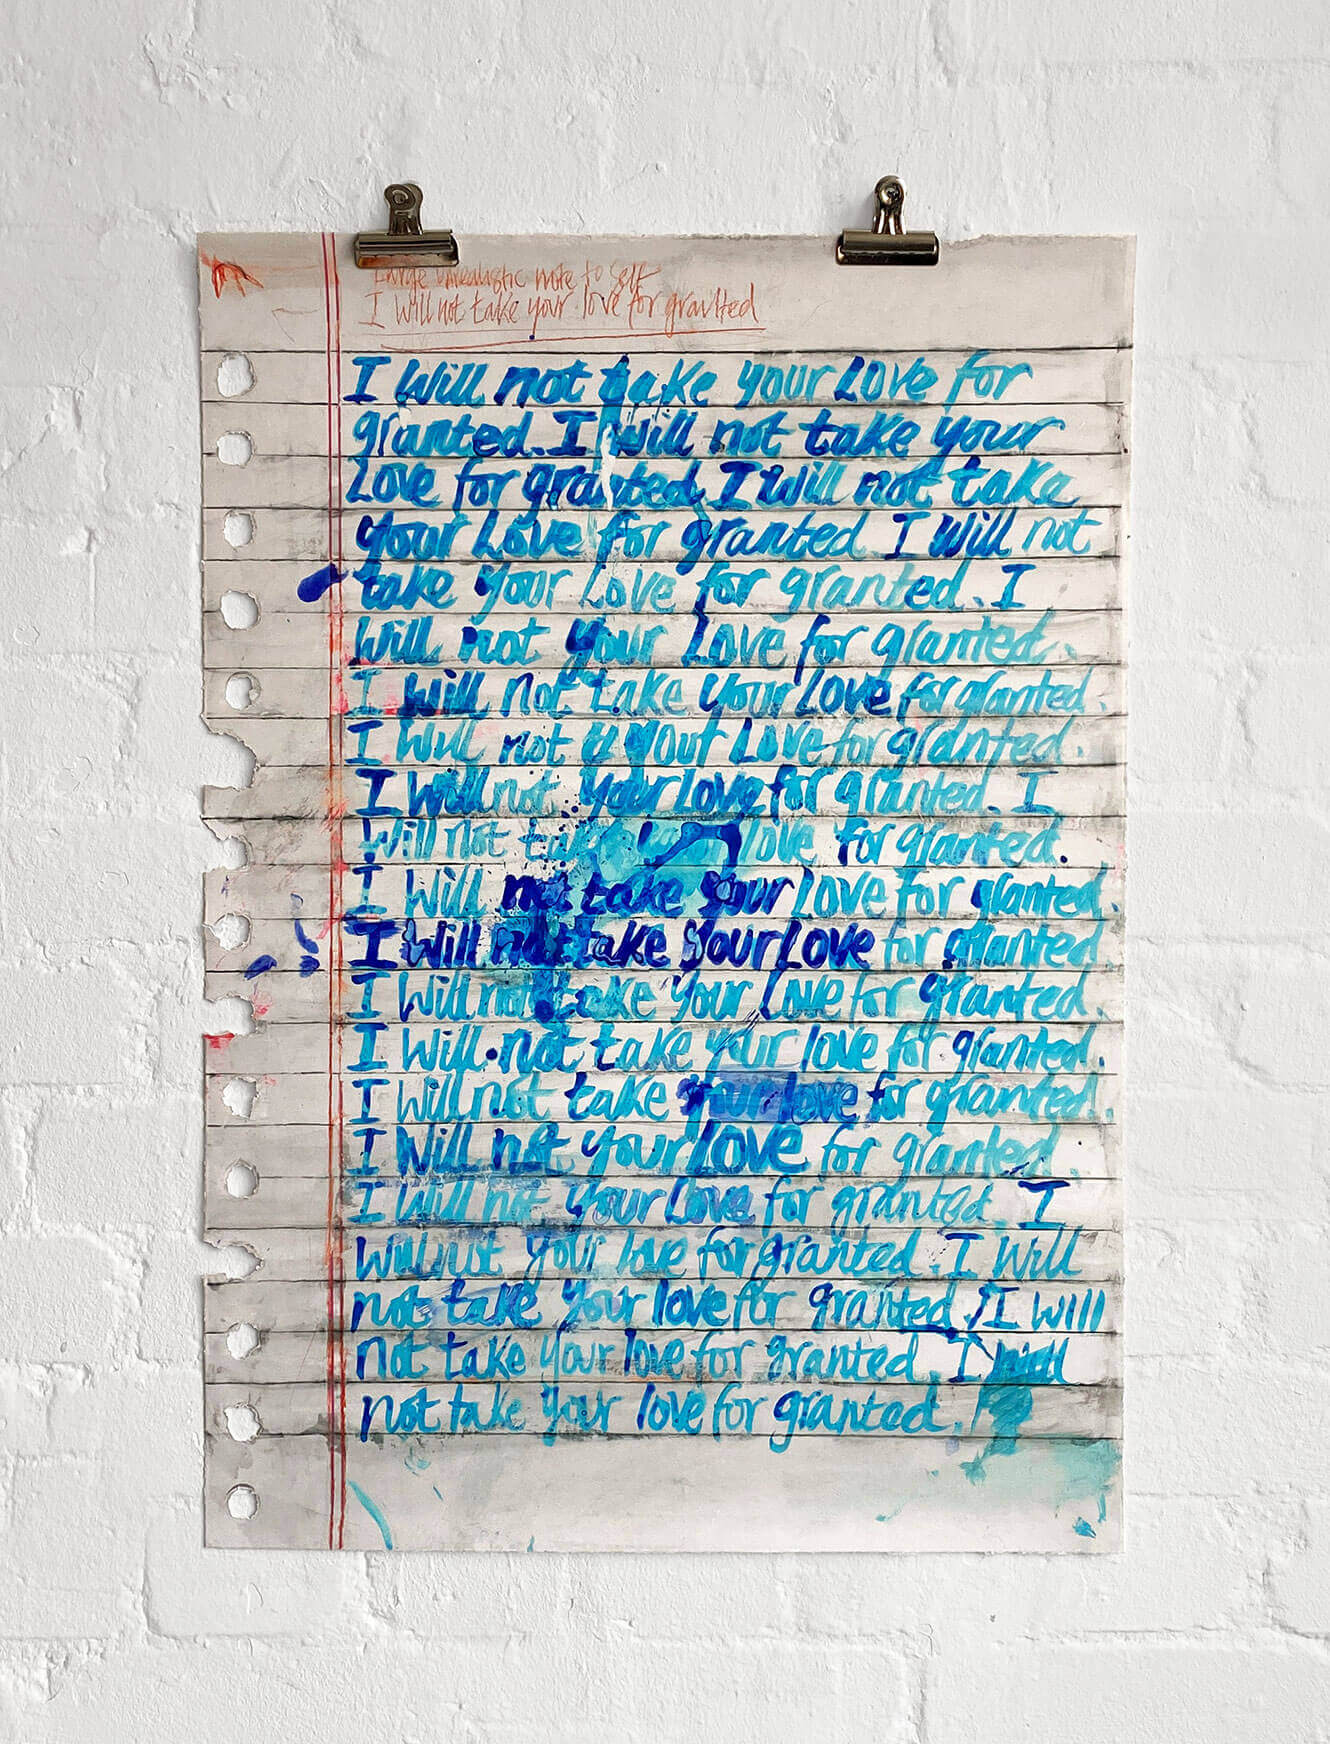 Large unrealistic note to self
I will not take your love for granted
I will not take your Love for
granted. I will not take your
Love for granted I will not take
your Love for granted I will not
take your Love for granted. I
will not your Love for granted.
I will not take your Love for granted.
I will not your Love for granted.
I will not your Love for granted. I
will not take your love for granted.
I will not take your Love for granted.
I will not take your Love for granted
I will not take your Love for granted.
I will not take your love for granted.
I will not take your love for granted.
I will not your Love for granted.
I will not your Love for granted. I
will not your love for granted. I will
not take your love for granted. I will
not take your love for granted. I will
not take your love for granted.